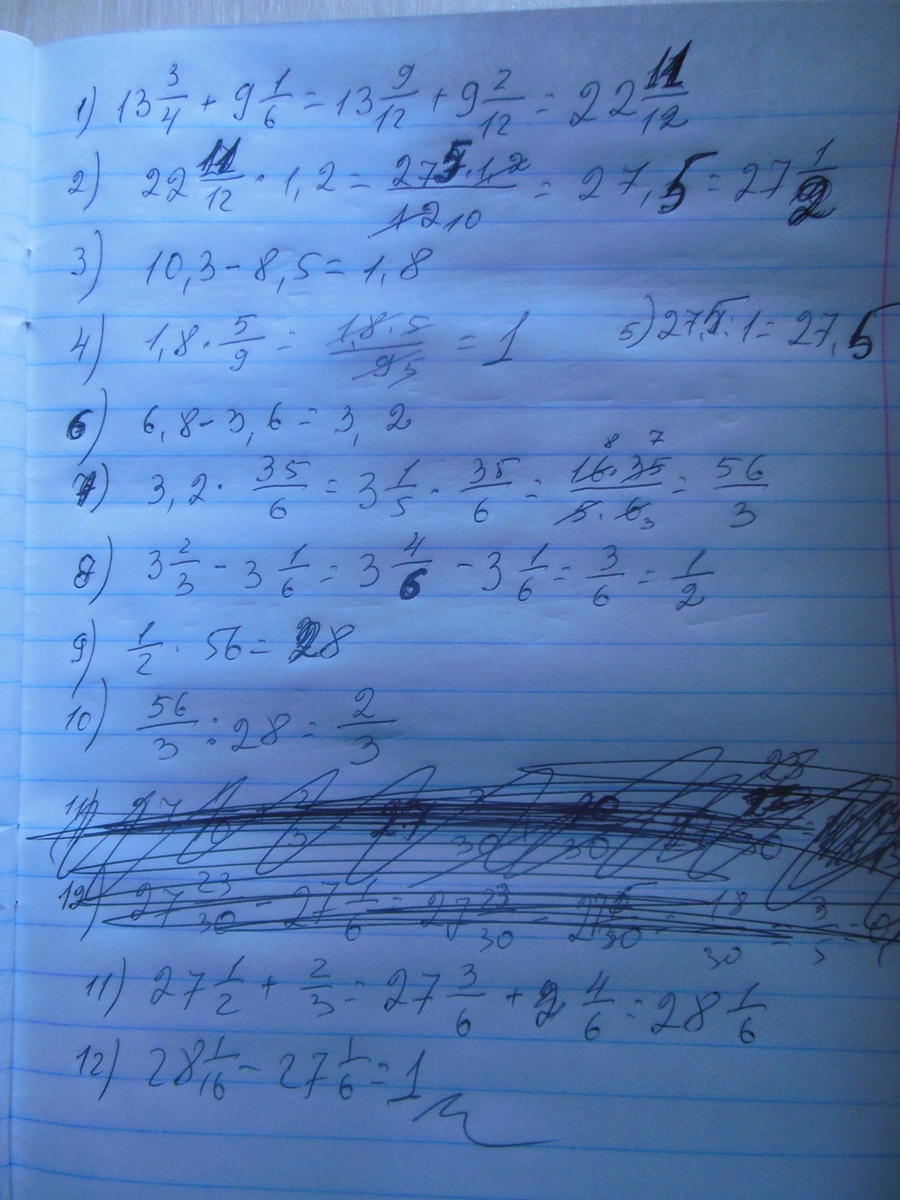 1) 13 3/4 + 9 1/6 = 13 9/12 + 9 2/12 = 22 11/12
2) 22 11/12 · 1,2 = 275·1,2/12 10 = 27,5 = 27 1/2
3) 10,3 - 8,5 = 1,8
4) 1,8 · 5/9 = 1,8·5/9 5 = 1 5) 27,5 : 1 = 27,5
6) 6,8 - 3,6 = 3,2
7) 3,2 · 35/6 = 3 1/5 · 35/6 = 16 8 · 35 7/5 · 6 3 = 56/3
8) 3 2/3 - 3 1/6 = 3 4/6 - 3 1/6 = 3/6 = 1/2
9) 1/2 · 56 = 28
10) 56/3 : 28 = 2/3
11)
12) 27 23/30 - 27 1/6 = 27 23/30 - 27 5/30 = 18/30 = 3/5 =
11) 27 1/2 + 2/3 = 27 3/6 + 4/6 = 28 1/6
12) 28 1/6 - 27 1/6 = 1